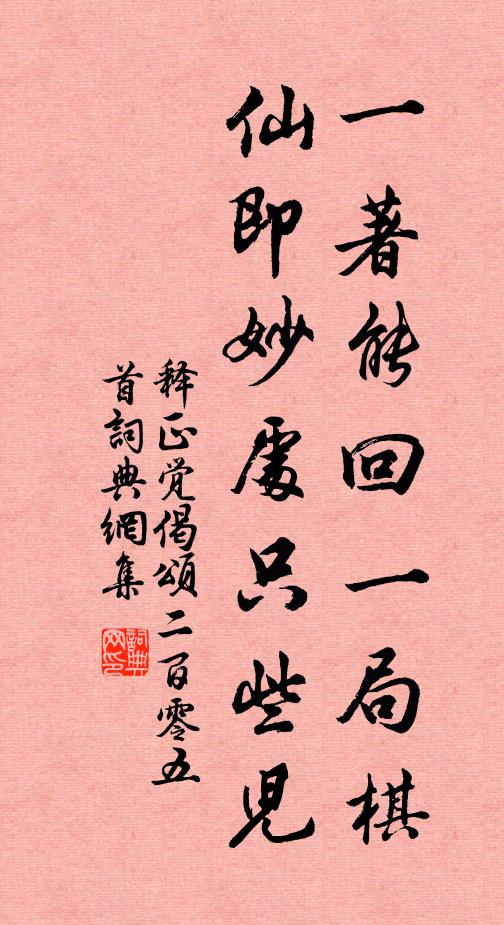 一著能回一局棋
仙即妙處只些兒
释正觉偈頌二百零五
首詞典網集
詞典网印